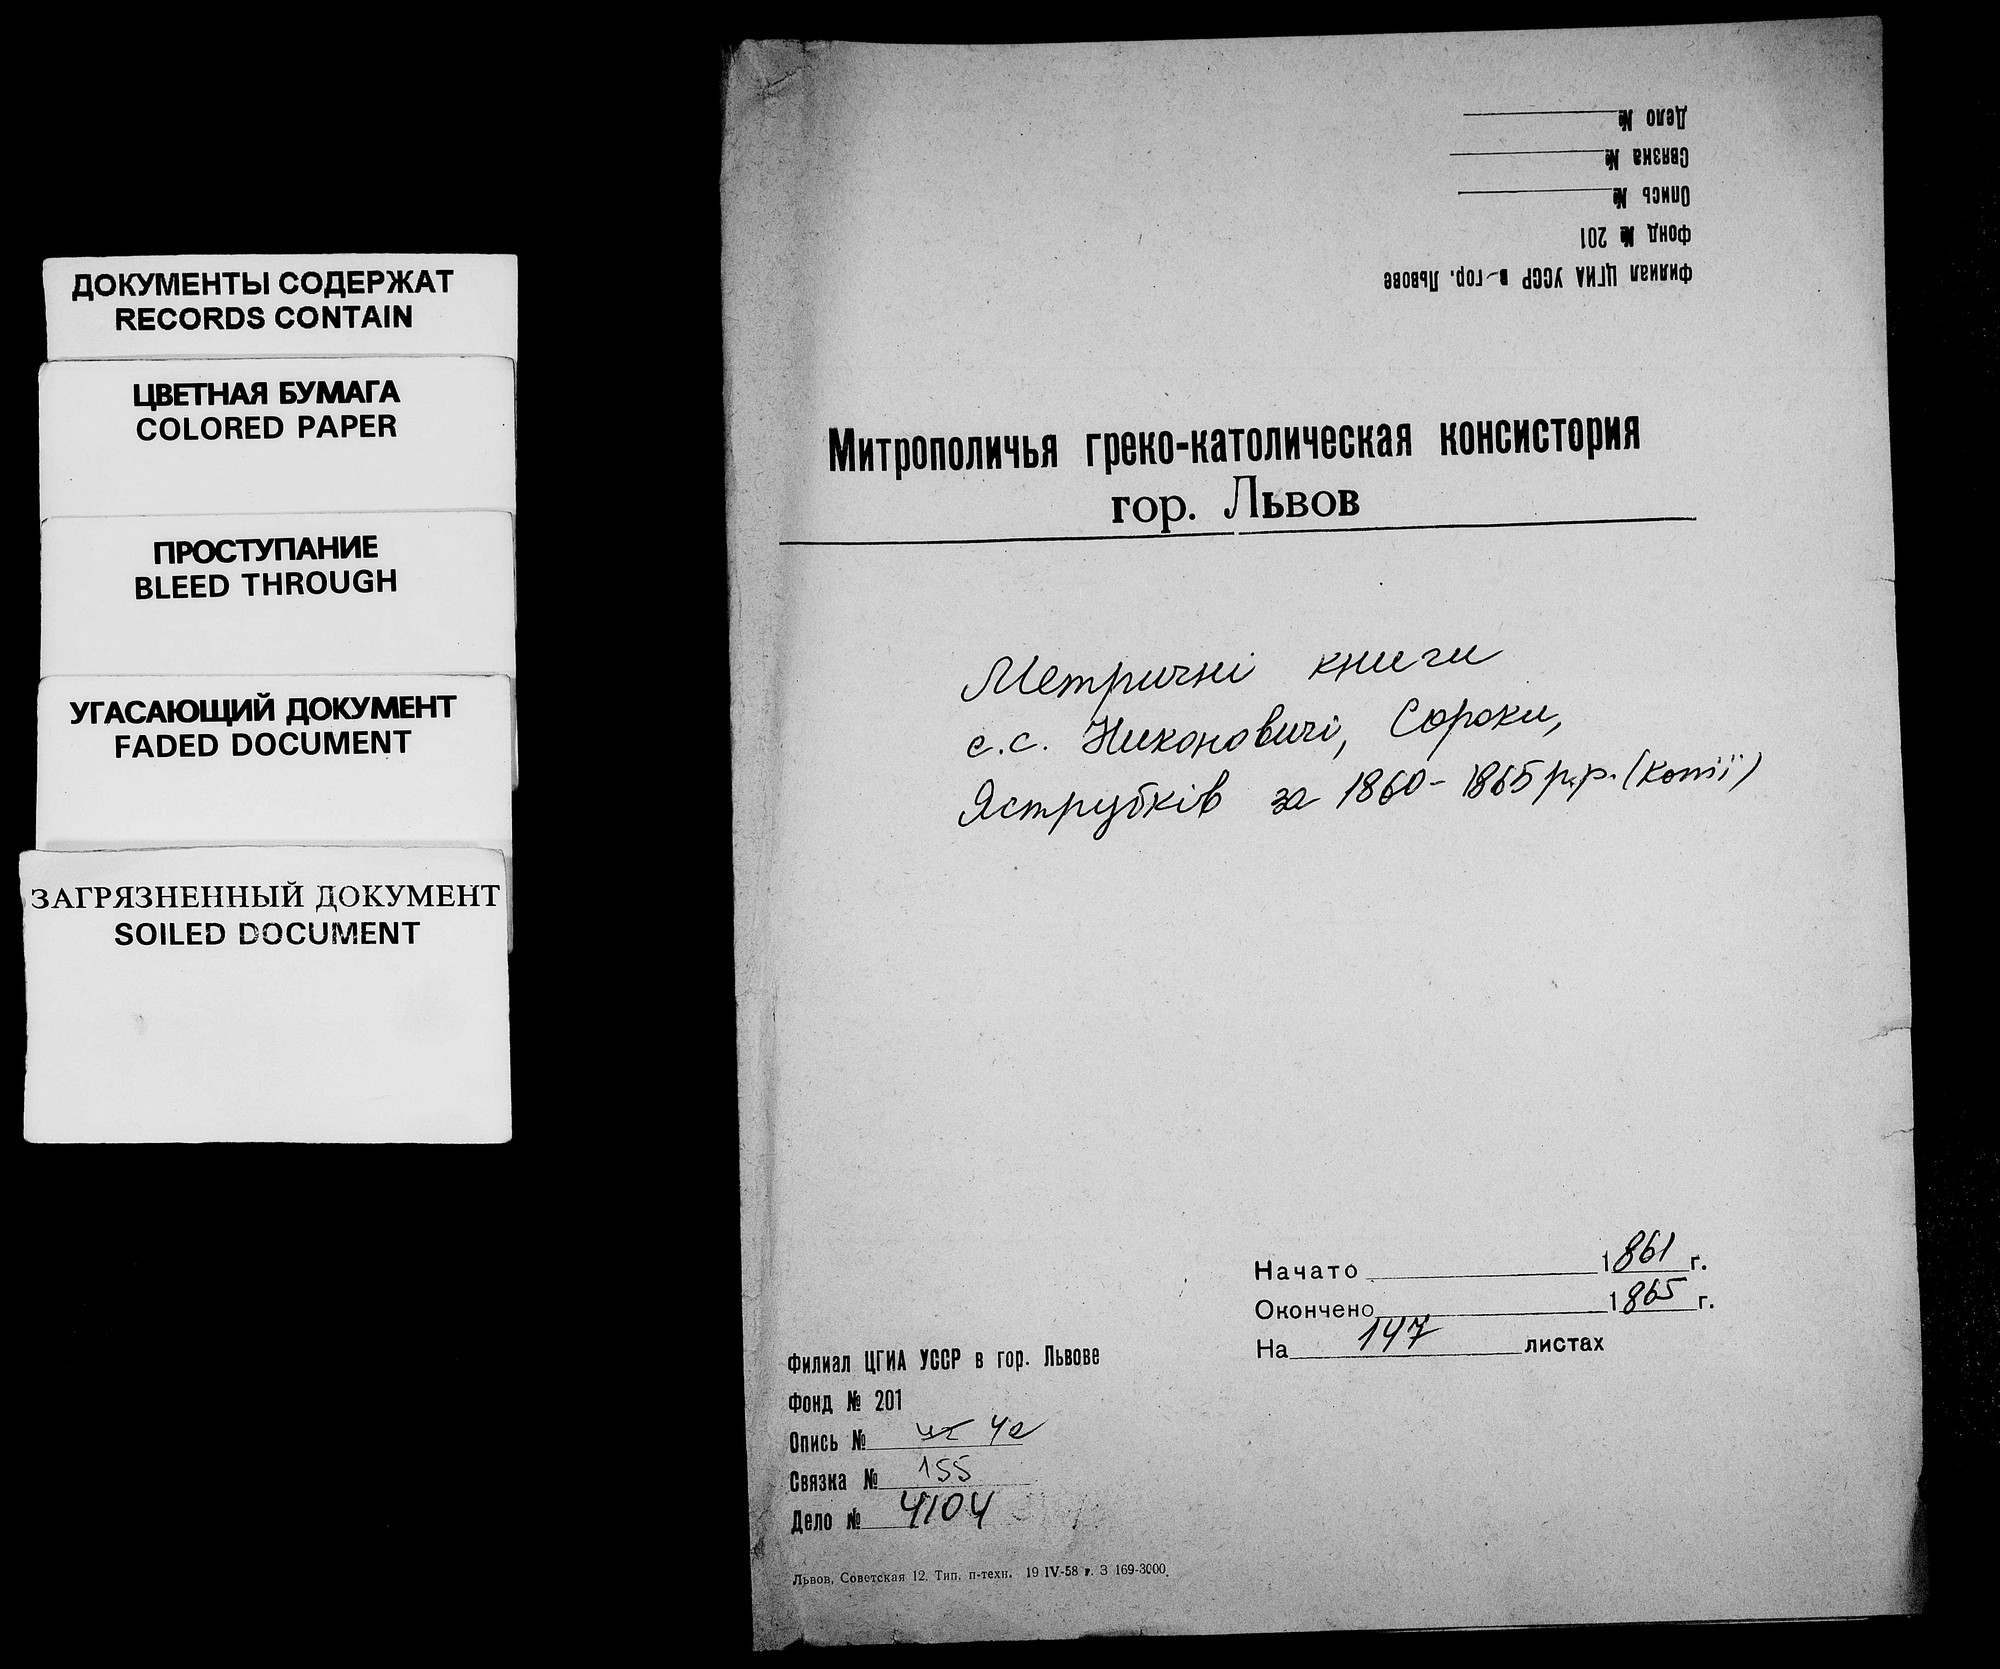 ДОКУМЕНТЫ СОДЕРЖАТ
RECORDS CONTAIN
ЦВЕТНАЯ БУМАГА
COLORED PAPER
ПРОСТУПАНИЕ
BLEED THROUGH
УГАСАЮЩИЙ ДОКУМЕНТ
FADED DOCUMENT
ЗАГРЯЗНЕННЫЙ ДОКУМЕНТ
SOILED DOCUMENT
Филиал ЦГИА УССР в гор. Львове
Фонд № 201
Опись №
Связка №
Дело №
Митрополичья греко-католическая консистория
гор. Львов
Метричні книги
с.с. Никоновичі, Сороки,
Яструбків за 1860-1865 р.р. (копії)
Начато 1861 г.
Окончено 1865 г.
На 147 листах
Филиал ЦГИА УССР в гор. Львове
Фонд № 201
Опись №
Связка № 155
Дело № 4104
Львов, Советская 12. Тип. п-техн. 19 IV-58 г. З 169-3000.